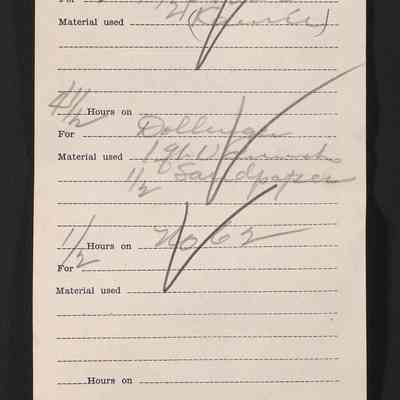 For
Material used
4 1/2 Hours on
For Dollinger
Material used 1 qt. Varnish
1/2 Sandpaper
1/2 Hours on No 62
For
Material used
Hours on